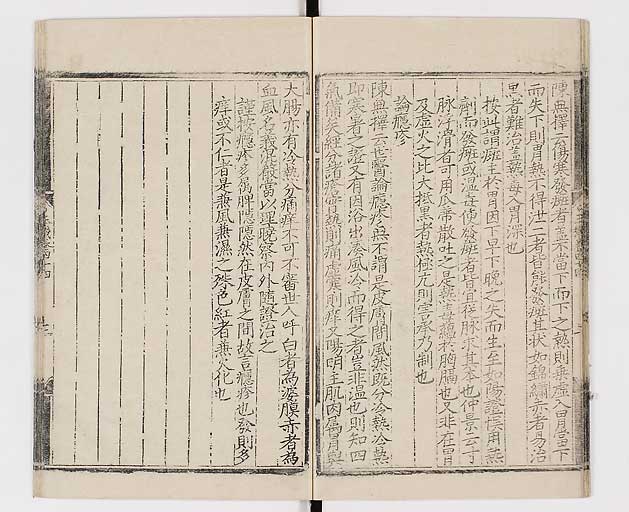 陳無擇云傷寒發斑者蓋不當下而下之熱則乘虛入胃當下
而失下則胃熱不得泄二者皆能發斑其狀如錦繡赤者易治
黑者難治蓋熱毒入胃深也
按此謂斑主於胃因下早下晚之失而生至如陽證悞用熱
劑而發斑或溫毒使發斑者皆宜從脉求其本也仲景云寸
脉浮滑者可用瓜蒂散吐之是熱毒蘊於胸膈也又非在胃
及虛火之比大抵黑者熱極亢則害承乃制也
論癮疹
陳無擇云世醫論癮疹無不謂是皮膚間風然既分冷熱冷熱
即寒暑之證又有因浴出湊風冷而得之者豈非溫也則知四
氣備矣經分諸瘡皆熱則痛虛寒則痒又陽明主肌肉屬胃與
大腸亦有冷熱分痛痒不可不審世人呼白者為婆膜赤者為
血風名義混殽當以理曉察內外隨證治之
謹按癮疹多屬脾隱隱然在皮膚之間故言癮疹也發則多
痒或不仁者是兼風兼濕之殊色紅者兼火化也